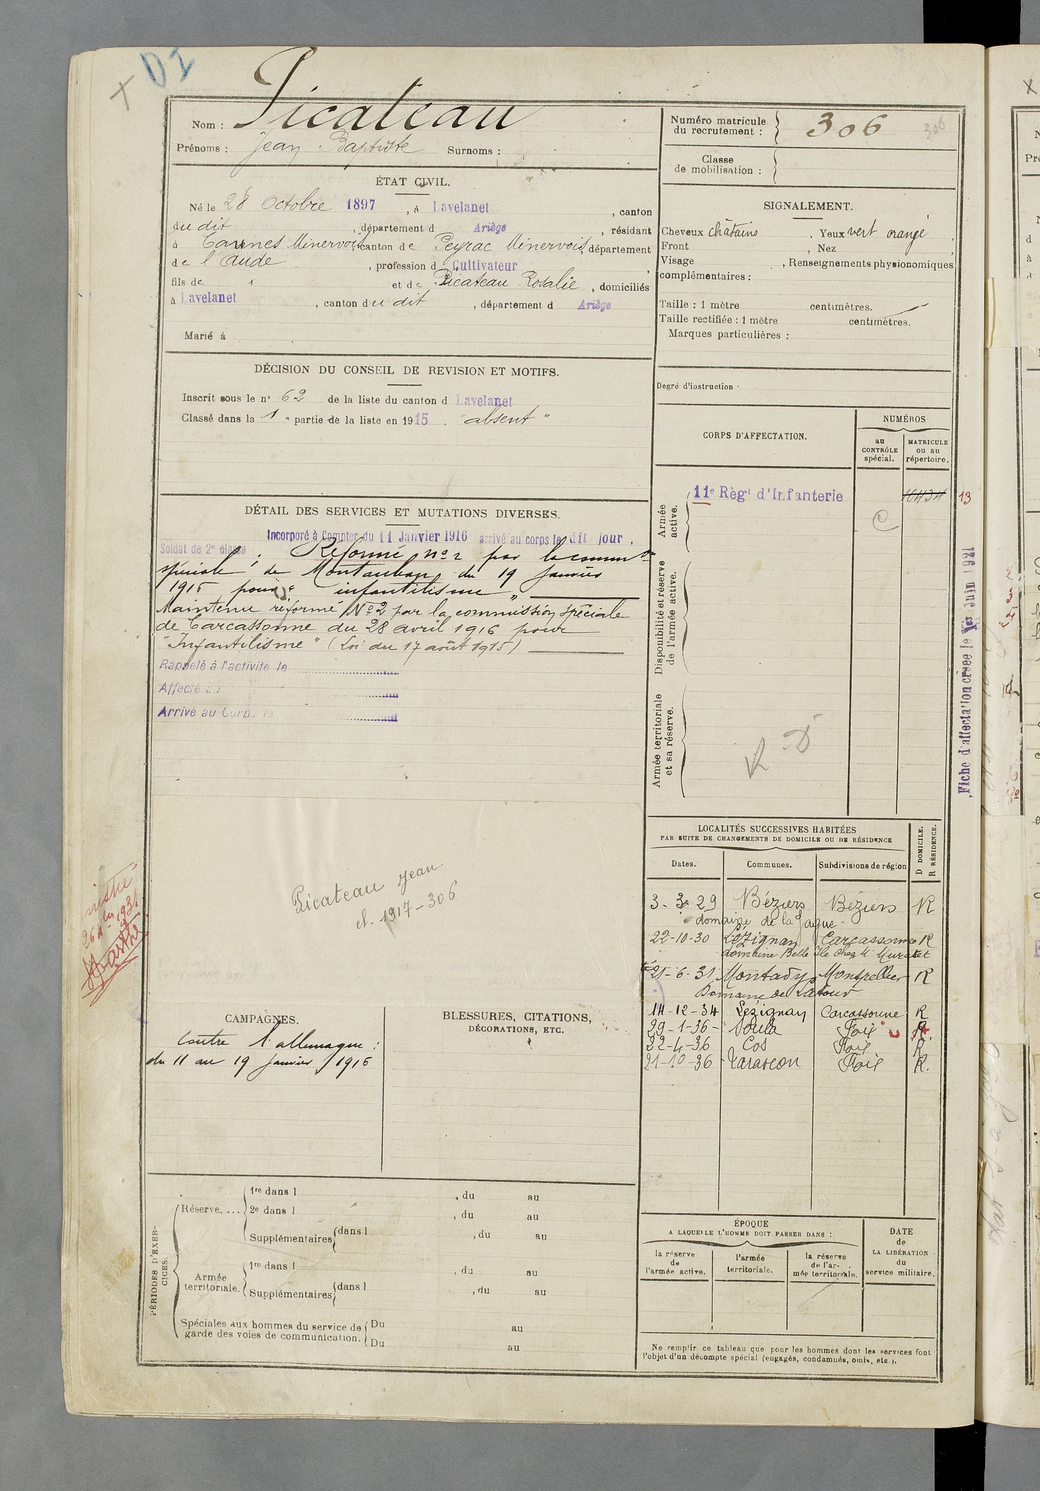 D I
Nom : Picateau
Prénoms : Jean Baptiste Surnoms :
Numéro matricule
du recrutement : 306
306
Classe
de mobilisation :
ÉTAT CIVIL.
Né le 28 Octobre 1897, à Lavelanet, canton
du dit, département d Ariège, résidant
à Caunes Minervois canton de Peyrac Minervois, département
de l'Aude, profession d Cultivateur
fils de et de Picateau Rosalie, domiciliés
à Lavelanet, canton du dit, département d Ariège
Marié à
SIGNALEMENT.
Cheveux châtains. Yeux vert orangé,
Front, Nez
Visage, Renseignements physionomiques
complémentaires :
Taille : 1 mètre centimètres.
Taille rectifiée : 1 mètre centimètres.
Marques particulières :
Degré d'instruction
DÉCISION DU CONSEIL DE REVISION ET MOTIFS.
Inscrit sous le n° 62 de la liste du canton d Lavelanet
Classé dans la 1e partie de la liste en 1915. "absent"
CORPS D'AFFECTATION.
NUMÉROS
au
CONTRÔLE
spécial.
MATRICULE
ou au
répertoire.
Armée
active.
11e Règt d'Infanterie
13
C
Disponibilité et réserve
de l'armée active.
Armée territoriale
et sa réserve.
R D
Fiche d'affectation créée le 1er Juin 1921
DÉTAIL DES SERVICES ET MUTATIONS DIVERSES.
Incorporé à Compter du 11 Janvier 1916 arrivé au corps le dit jour.
Soldat de 2e classe ; Réformé n° 2 par la common
spéciale de Montauban du 19 Janvier
1916 pour "infantilisme"
Maintenu réformé N°2 par la commission spéciale
de Carcassonne du 28 avril 1916 pour
"Infantilisme" (Loi du 17 août 1915)
Rappelé à l'activité le
Affecté au
Arrivé au Corps le
Picateau Jean
cl. 1917-306
LOCALITÉS SUCCESSIVES HABITÉES
PAR SUITE DE CHANGEMENTS DE DOMICILE OU DE RÉSIDENCE
Dates.
Communes.
Subdivisions de région
D DOMICILE.
R RÉSIDENCE.
3-3-29 Béziers Béziers R
domaine de la
22-10-30 Lézignan Carcassonne R
domaine Belle Ile chez Mr
21-6-31 Montady Montpellier R
Domaine de Latour
14-12-34 Lézignan Carcassonne R
29-1-36 Soula Foix R
22-4-36 Cos Foix R
21-10-36 Tarascon Foix R.
CAMPAGNES.
Contre l'allemagne :
du 11 au 19 Janvier 1916
BLESSURES, CITATIONS,
DÉCORATIONS, ETC.
PÉRIODES D'EXER-
CICES.
Réserve....
1re dans l, du au
2e dans l, du au
Supplémentaires dans l, du au
Armée
territoriale.
1re dans l, du au
Supplémentaires dans l, du au
Spéciales aux hommes du service de
garde des voies de communication.
Du au
Du au
ÉPOQUE
A LAQUELLE L'HOMME DOIT PASSER DANS :
la réserve
de
l'armée active.
l'armée
territoriale.
la réserve
de l'ar-
mée territoriale.
DATE
de
LA LIBÉRATION
du
service militaire.
Ne remplir ce tableau que pour les hommes dont les services font
l'objet d'un décompte spécial (engagés, condamnés, omis, etc.).